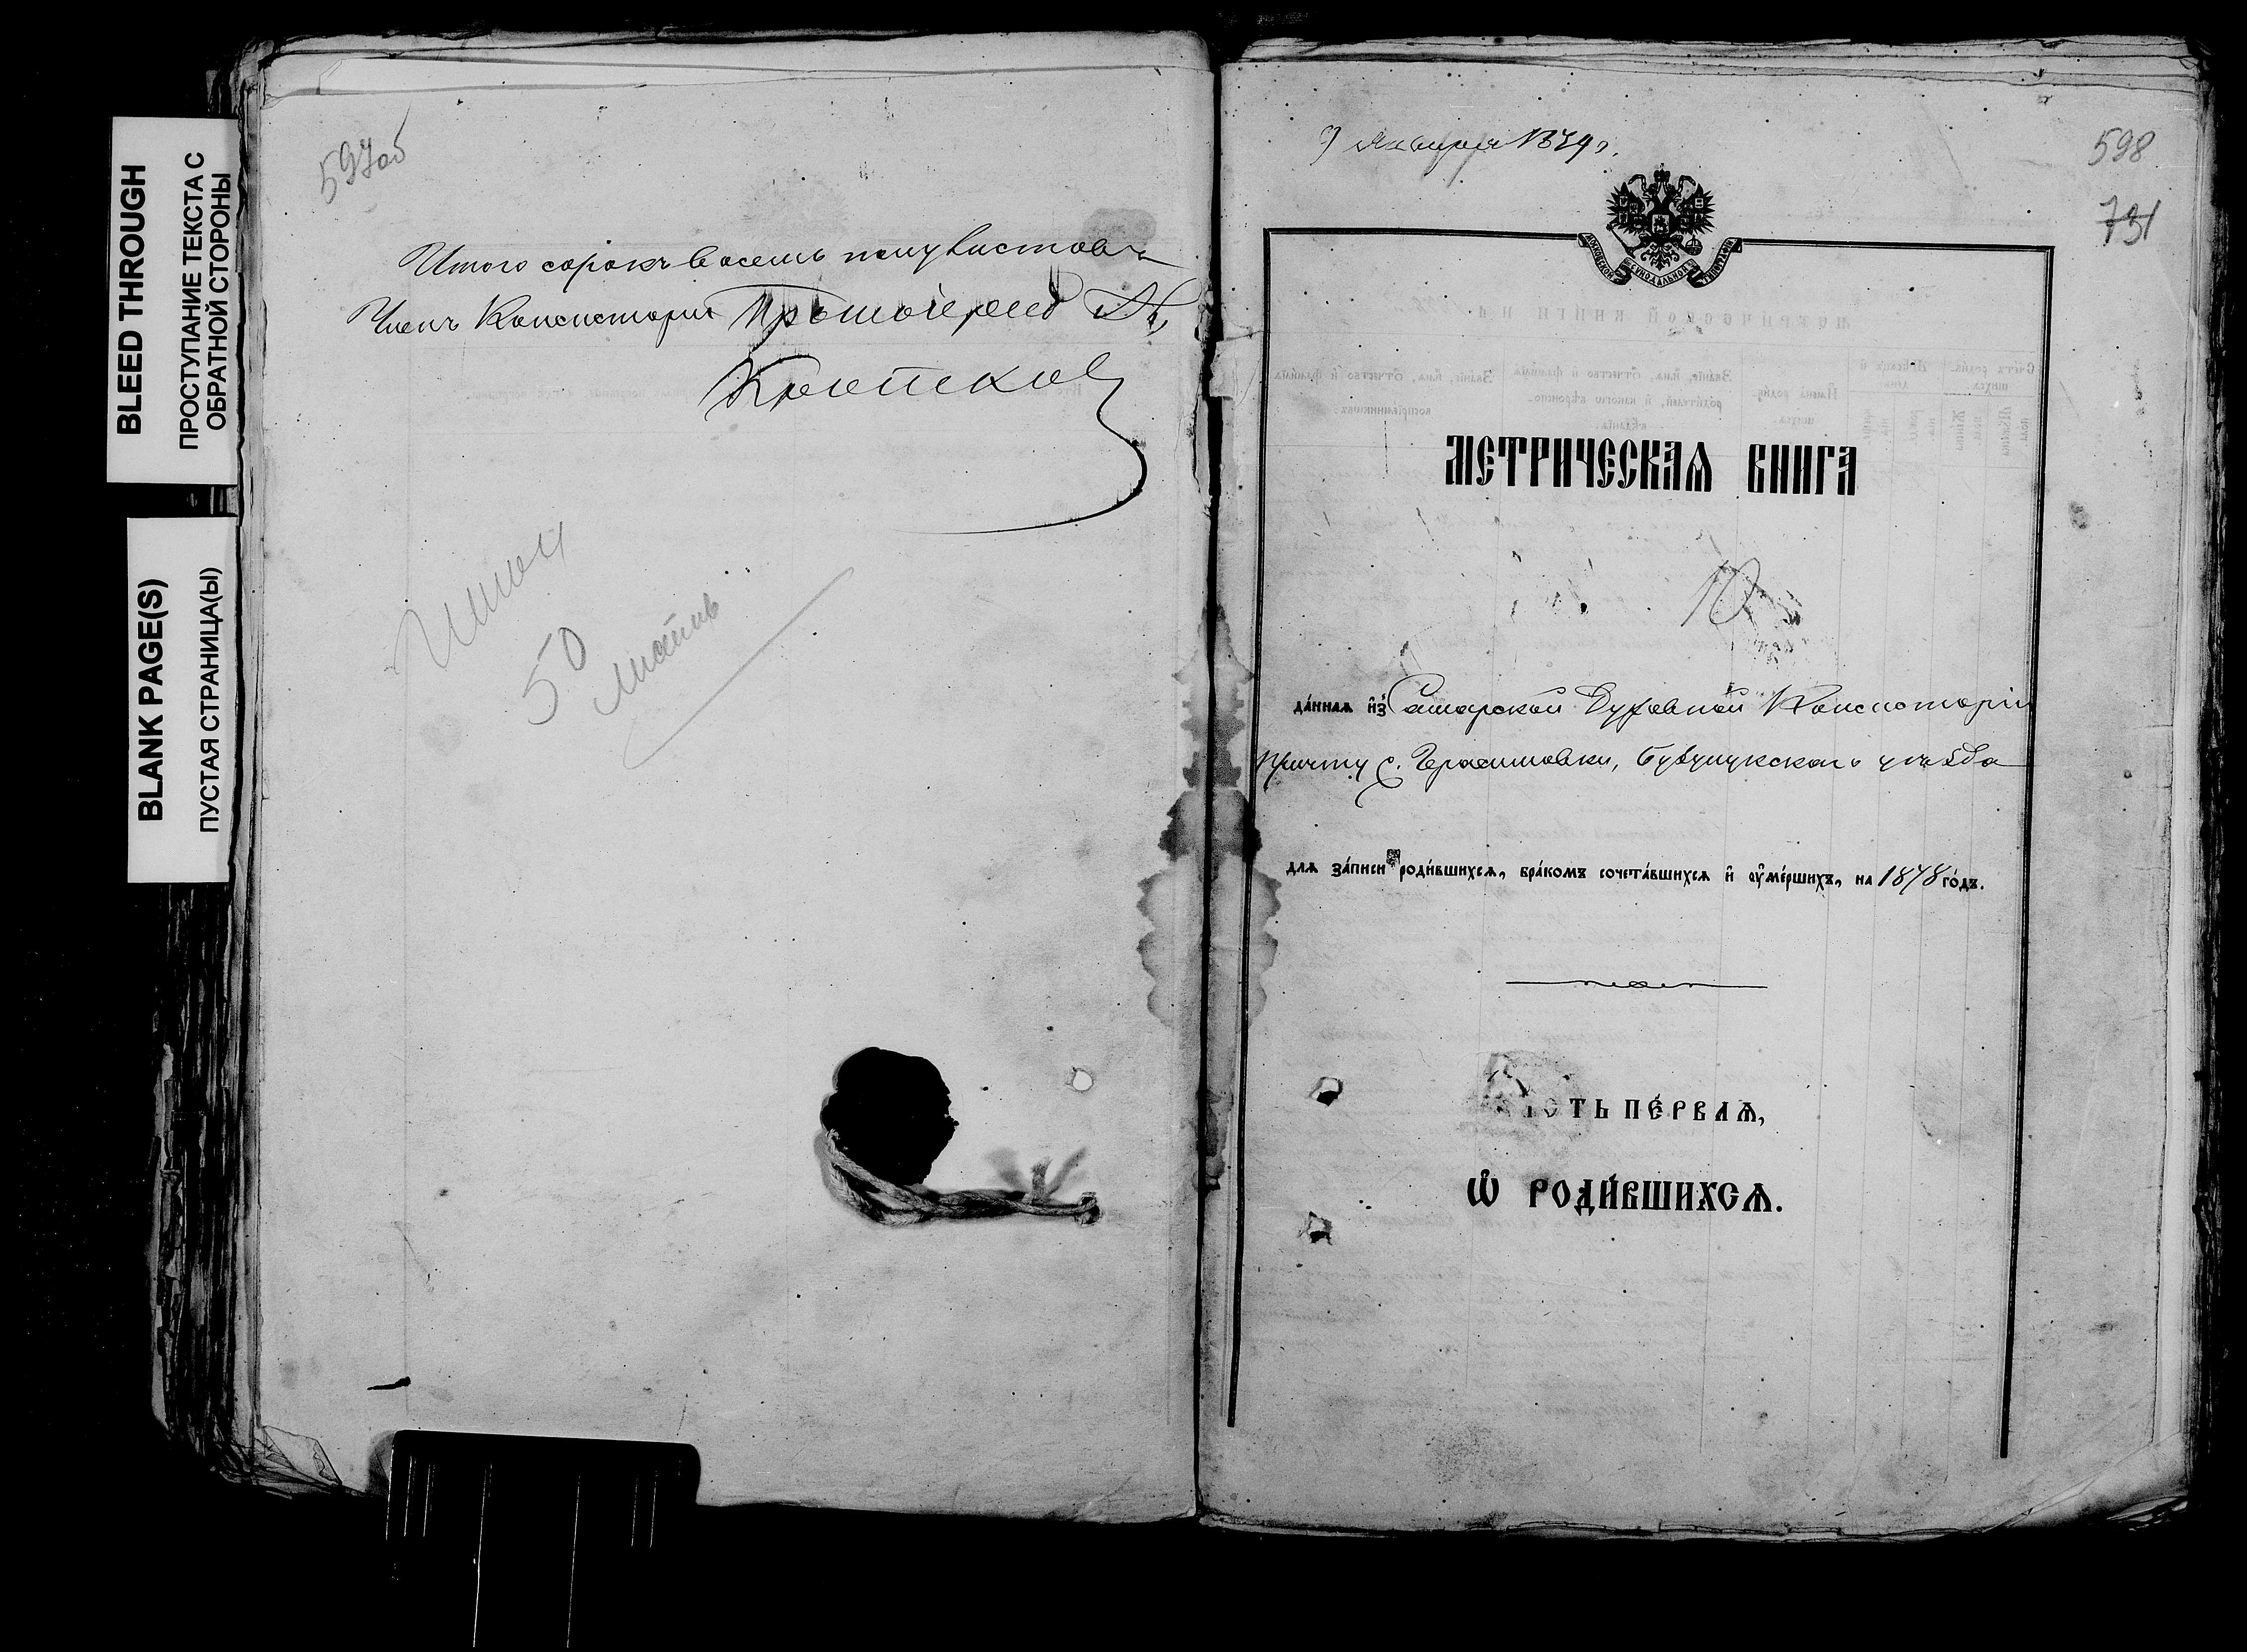 BLEED THROUGH
ПРОСТУПАНИЕ ТЕКСТА С
ОБРАТНОЙ СТОРОНЫ
BLANK PAGE(S)
ПУСТАЯ СТРАНИЦА(Ы)
597об
Итого сорокъ восемь полулистовъ
Членъ Консисторіи Протоіерей
50 листовъ
9 Января 1879 г.
598
731
МОСКОВСКОЙ СѴНОДАЛЬНОЙ ТИПОГРАФІИ
МЕТРИЧЕСКАѦ КНИГА
да́ннаѧ и҆з̾ Самарской Духовной Консисторіи
причту с. Герасимовки, Бузулукскаго уѣзда
для за́писи роди́вшихсѧ, бра́комъ сочета́вшихсѧ и҆ ᲂу҆ме́ршихъ, на 1878 го́дъ.
ТЬ ПЕ́РВАѦ,
Ѡ҆ РОДИ́ВШИХСѦ.